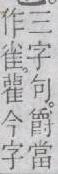 三字句。爵當
作雀。雚今字